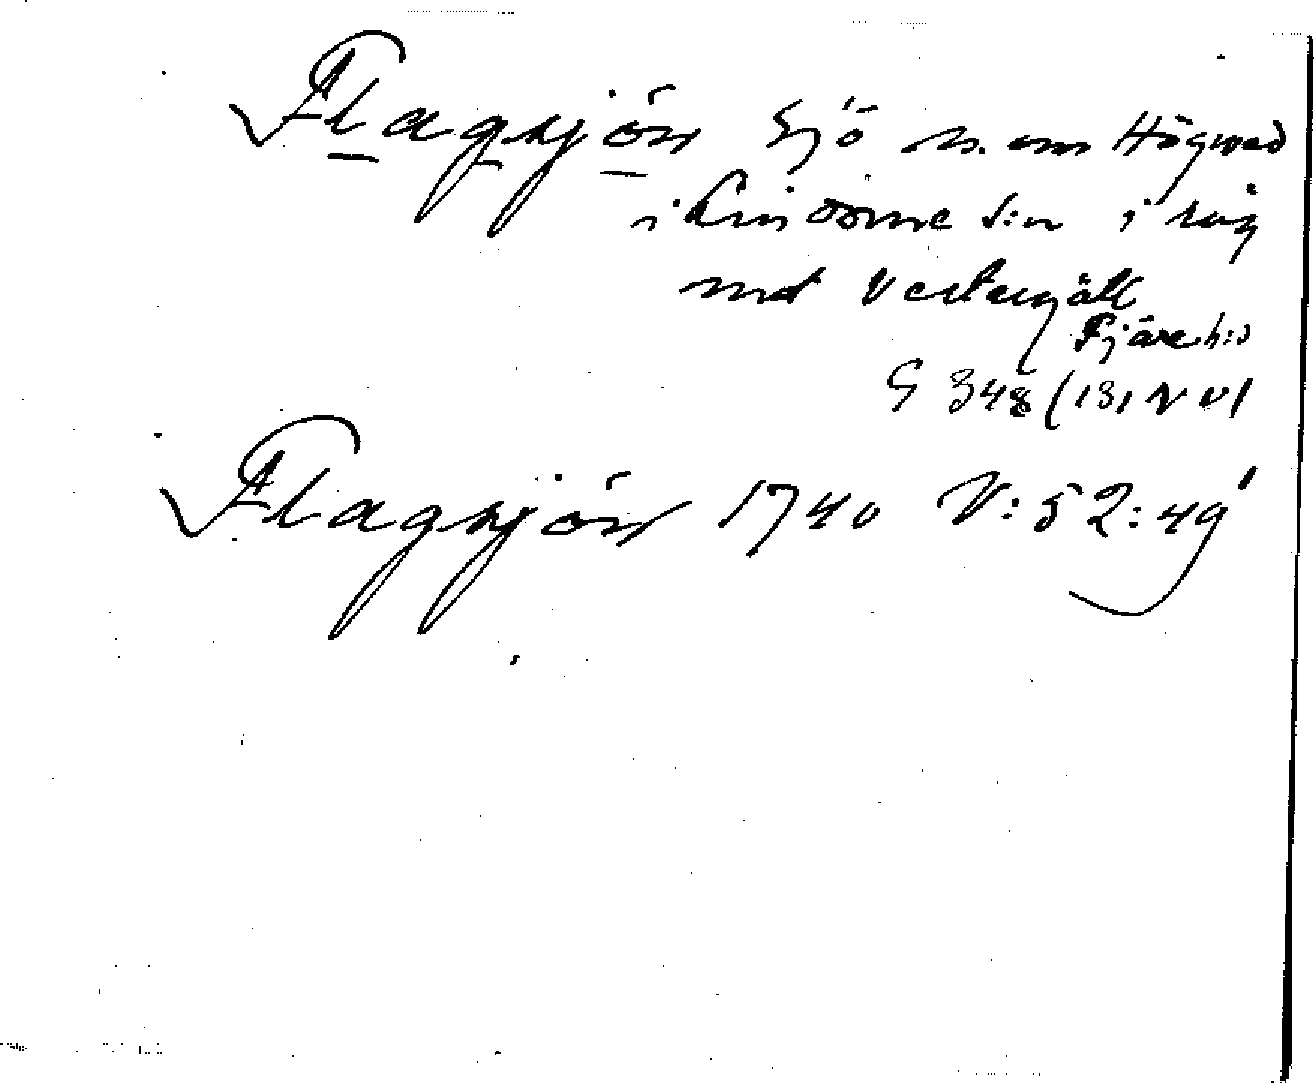 Flagsjön Sjö n. om Högvad
i Kinδome s:n i råg
mot Vestergötl
Fjäre h:d
G 348 (131 V V)
Flagsjön 1740 V:52:49